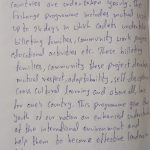 countries are undertaken yearly. The
Exchange programme includes mutual
up to 21 days in which cadets
billeting families, community
educational activities etc. These billeting
families, community these project develop
mutual respect, adaptability, self discipline
cross cultural learning and above all, love
for one's country. This programme give the
youth of our nation an enhanced
of the international environment and
help them to become effective leaders